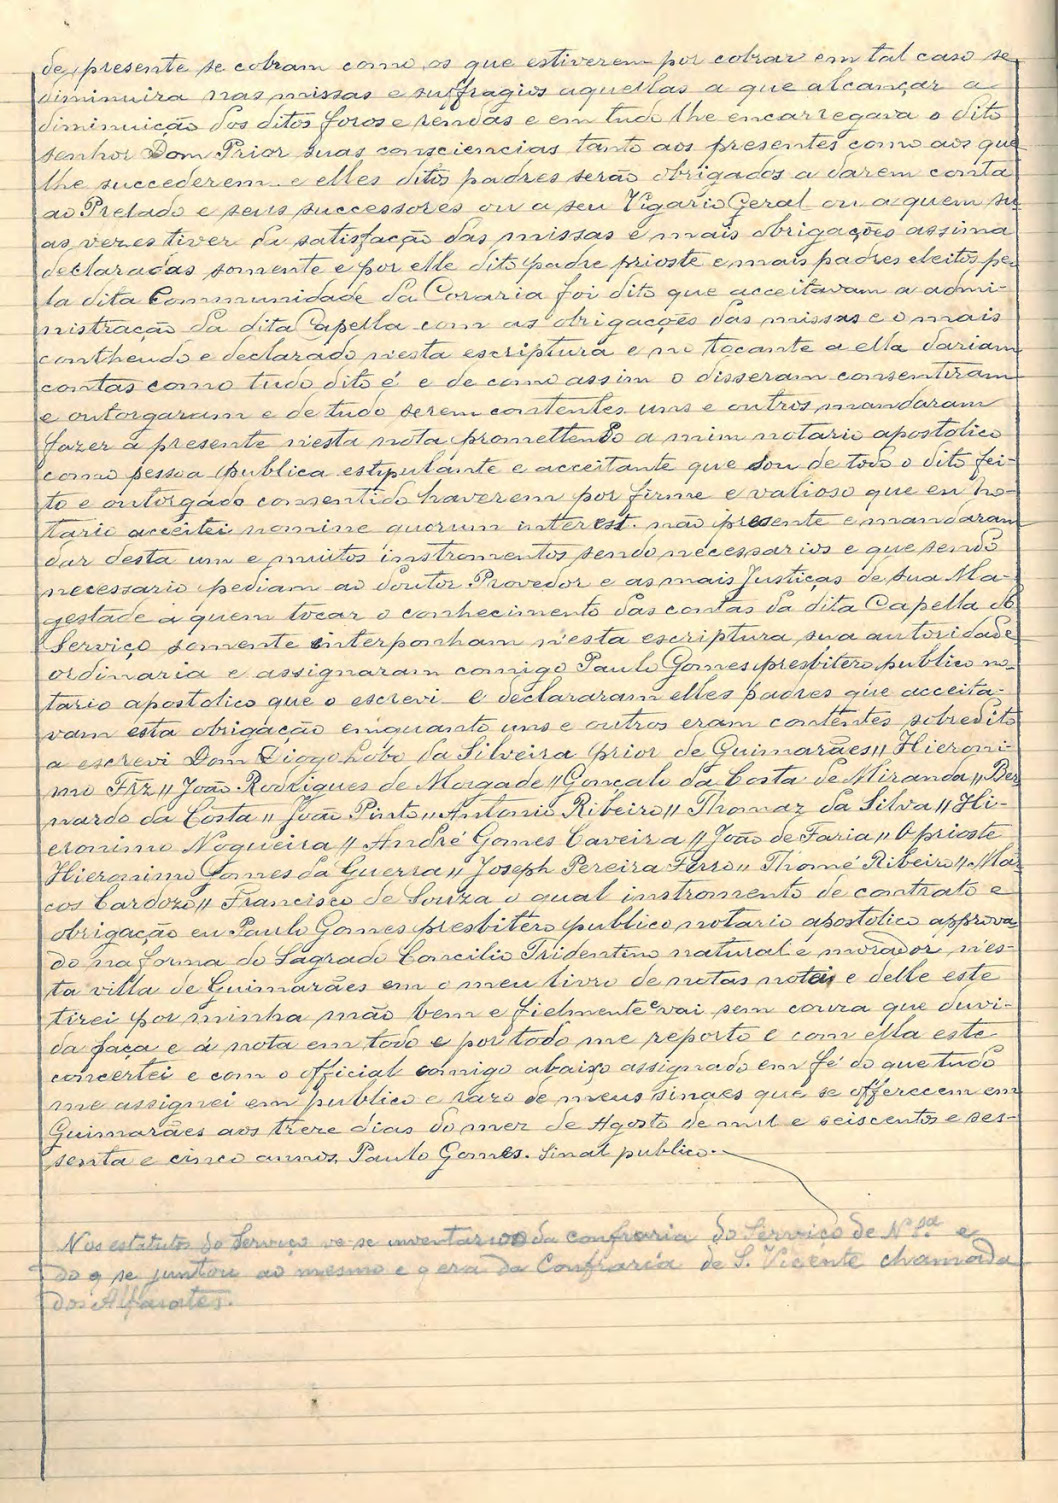 de presente se cobram como os que estiverem por cobrar em tal caso se
diminuira nas missas e suffragios aquellas a que alcançar a
diminuição dos ditos foros e rendas e em tudo lhe encarregava o dito
senhor Dom Prior suas consciencias tanto aos presentes como aos que
lhe succederem e elles ditos padres serão obrigados a darem conta
ao Prelado e seus successores ou a seu Vigario Geral ou a quem su-
as vezes tiver da satisfação das missas e mais obrigações assima
declaradas somente e por elle dito padre prioste e mais padres eleitos pe-
la dita Communidade da Coraria foi dito que acceitavam a admi-
nistração da dita Capella com as obrigações das missas e o mais
contheudo e declarado n'esta escriptura e no tocante a ella dariam
contas como tudo dito é e de como assim o disseram consentiram
e outorgaram e de tudo serem contentes uns e outros mandaram
fazer a presente n'esta nota promettendo a mim notario apostolico
como pessoa publica estipulante e acceitante que sou de todo o dito fei-
to e outorgado consentido haverem por firme e valioso que eu no-
tario acceitei nomine quorum interest não presente e mandaram
dar desta um e muitos instromentos sendo necessarios e que sendo
necessario pediam ao Doutor Provedor e as mais Justiças de Sua Ma-
gestade a quem tocar o conhecimento das contas da dita Capella do
Serviço somente interponham n'esta escriptura sua autoridade
ordinaria e assignaram comigo Paulo Gomes presbitero publico no-
tario apostolico que o escrevi e declararam elles padres que acceita-
vam esta obrigação emquanto uns e outros eram contentes sobredito
a escrevi Dom Diogo Lobo da Silveira prior de Guimarães,, Hieroni-
mo Frz,, João Rodrigues de Morgade,, Gonçalo da Costa de Miranda,, Ber-
nardo da Costa,, João Pinto,, Antonio Ribeiro,, Thomaz da Silva,, Hi-
eronimo Nogueira,, André Gomes Caveira,, João de Faria,, O prioste
Hieronimo Gomes da Guerra,, Joseph Pereira Ferro,, Thomé Ribeiro,, Mar-
cos Cardozo,, Francisco de Souza o qual instromento de contrato e
obrigação eu Paulo Gomes presbitero publico notario apostolico approva-
do na forma do Sagrado Concilio Tridentino natural e morador n'es-
ta villa de Guimarães em o meu livro de notas notei e delle este
tirei por minha mão bem e fielmente e vai sem couza que duvi-
da faça e á nota em todo e por todo me reporto e com ella este
concertei e com o official comigo abaixo assignado em fé do que tudo
me assignei em publico e razo de meus sinaes que se offerecem em
Guimarães aos treze dias do mez de Agosto de mil e seiscentos e ses-
senta e cinco annos, Paulo Gomes. Sinal publico.
Nos estatutos do Serviço ve-se inventario da confraria do Serviço de N. S.ra e
do q se juntou ao mesmo e q era da Confraria de S. Vicente chamada
dos Alfaiates.